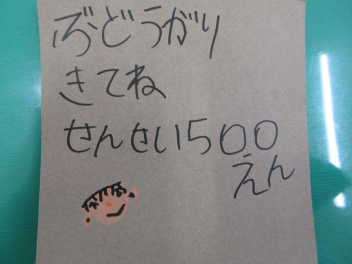 ぶどうがり
きてね
せんせい500
えん